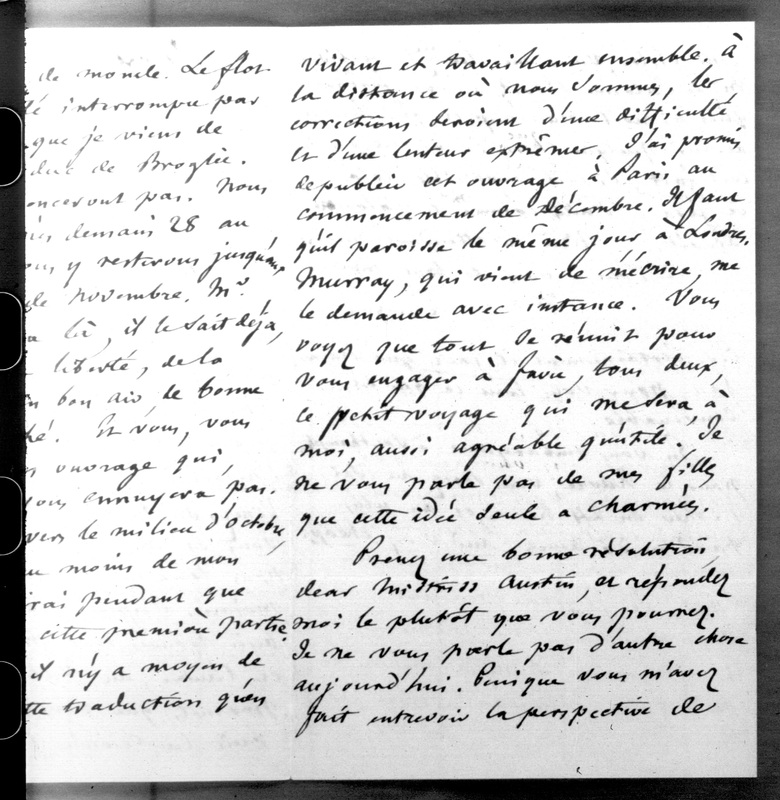 de monde. Le flot
interrompu par
que je viens de
duc de Broglie.
pas. Nous
demain 28 au
y resterons jusqu'aux
de novembre. Mr.
là, il le sait déjà,
liberté, de la
bon air de bonne
Et vous, vous
ouvrage qui,
ennuyera pas.
vers le milieu d'octobre,
moins de mon
pendant que
cette première partie.
il n'y a moyen de
traduction qu'en
vivant et travaillant ensemble. à
la distance où nous sommes, les
corrections seroient d'une difficulté
et d'une lenteur extrêmes. J'ai promis
de publier cet ouvrage à Paris au
commencement de Décembre. Il faut
qu'il paroisse le même jour à Londres.
Murray, qui vient de m'écrire, me
le demande avec instance. Vous
voyez que tout se réunit pour
vous engager à faire, tous deux,
ce petit voyage qui me sera, à
moi, aussi agréable qu'utile. Je
ne vous parle pas de mes filles
que cette idée seule a charmées.
Prenez une bonne résolution,
dear Mistriss Austin, et répondez
moi le plutôt que vous pourrez.
Je ne vous parle pas d'autre chose
aujourd'hui. Puisque vous m'avez
fait entrevoir la perspective de